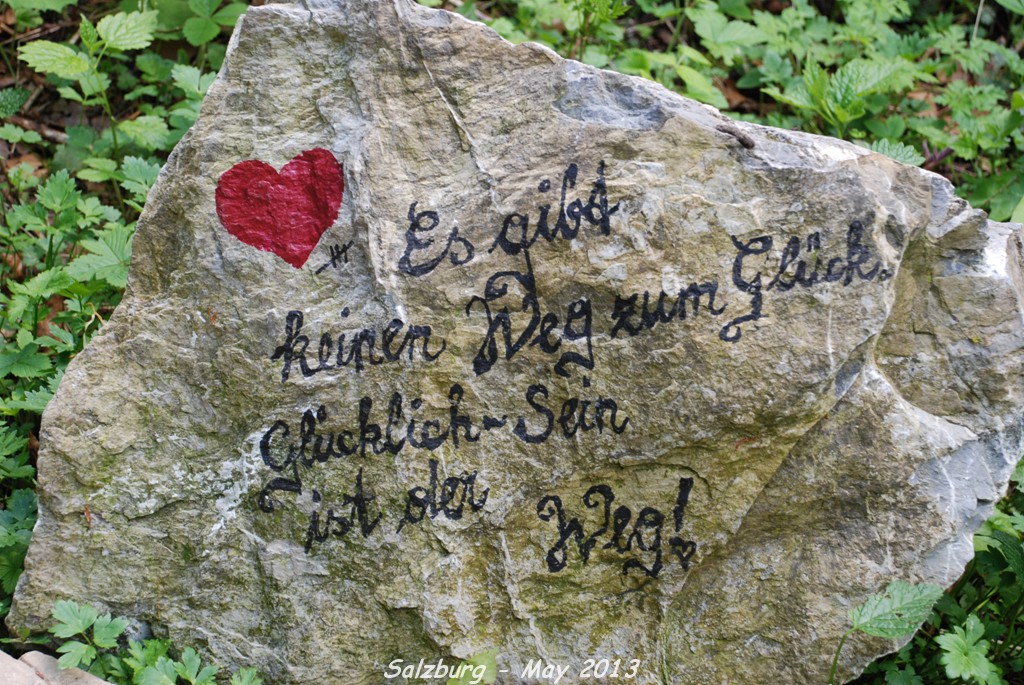 Es gibt
keinen Weg zum Glück.
Glücklich-Sein
ist der Weg!
Salzburg - May 2013